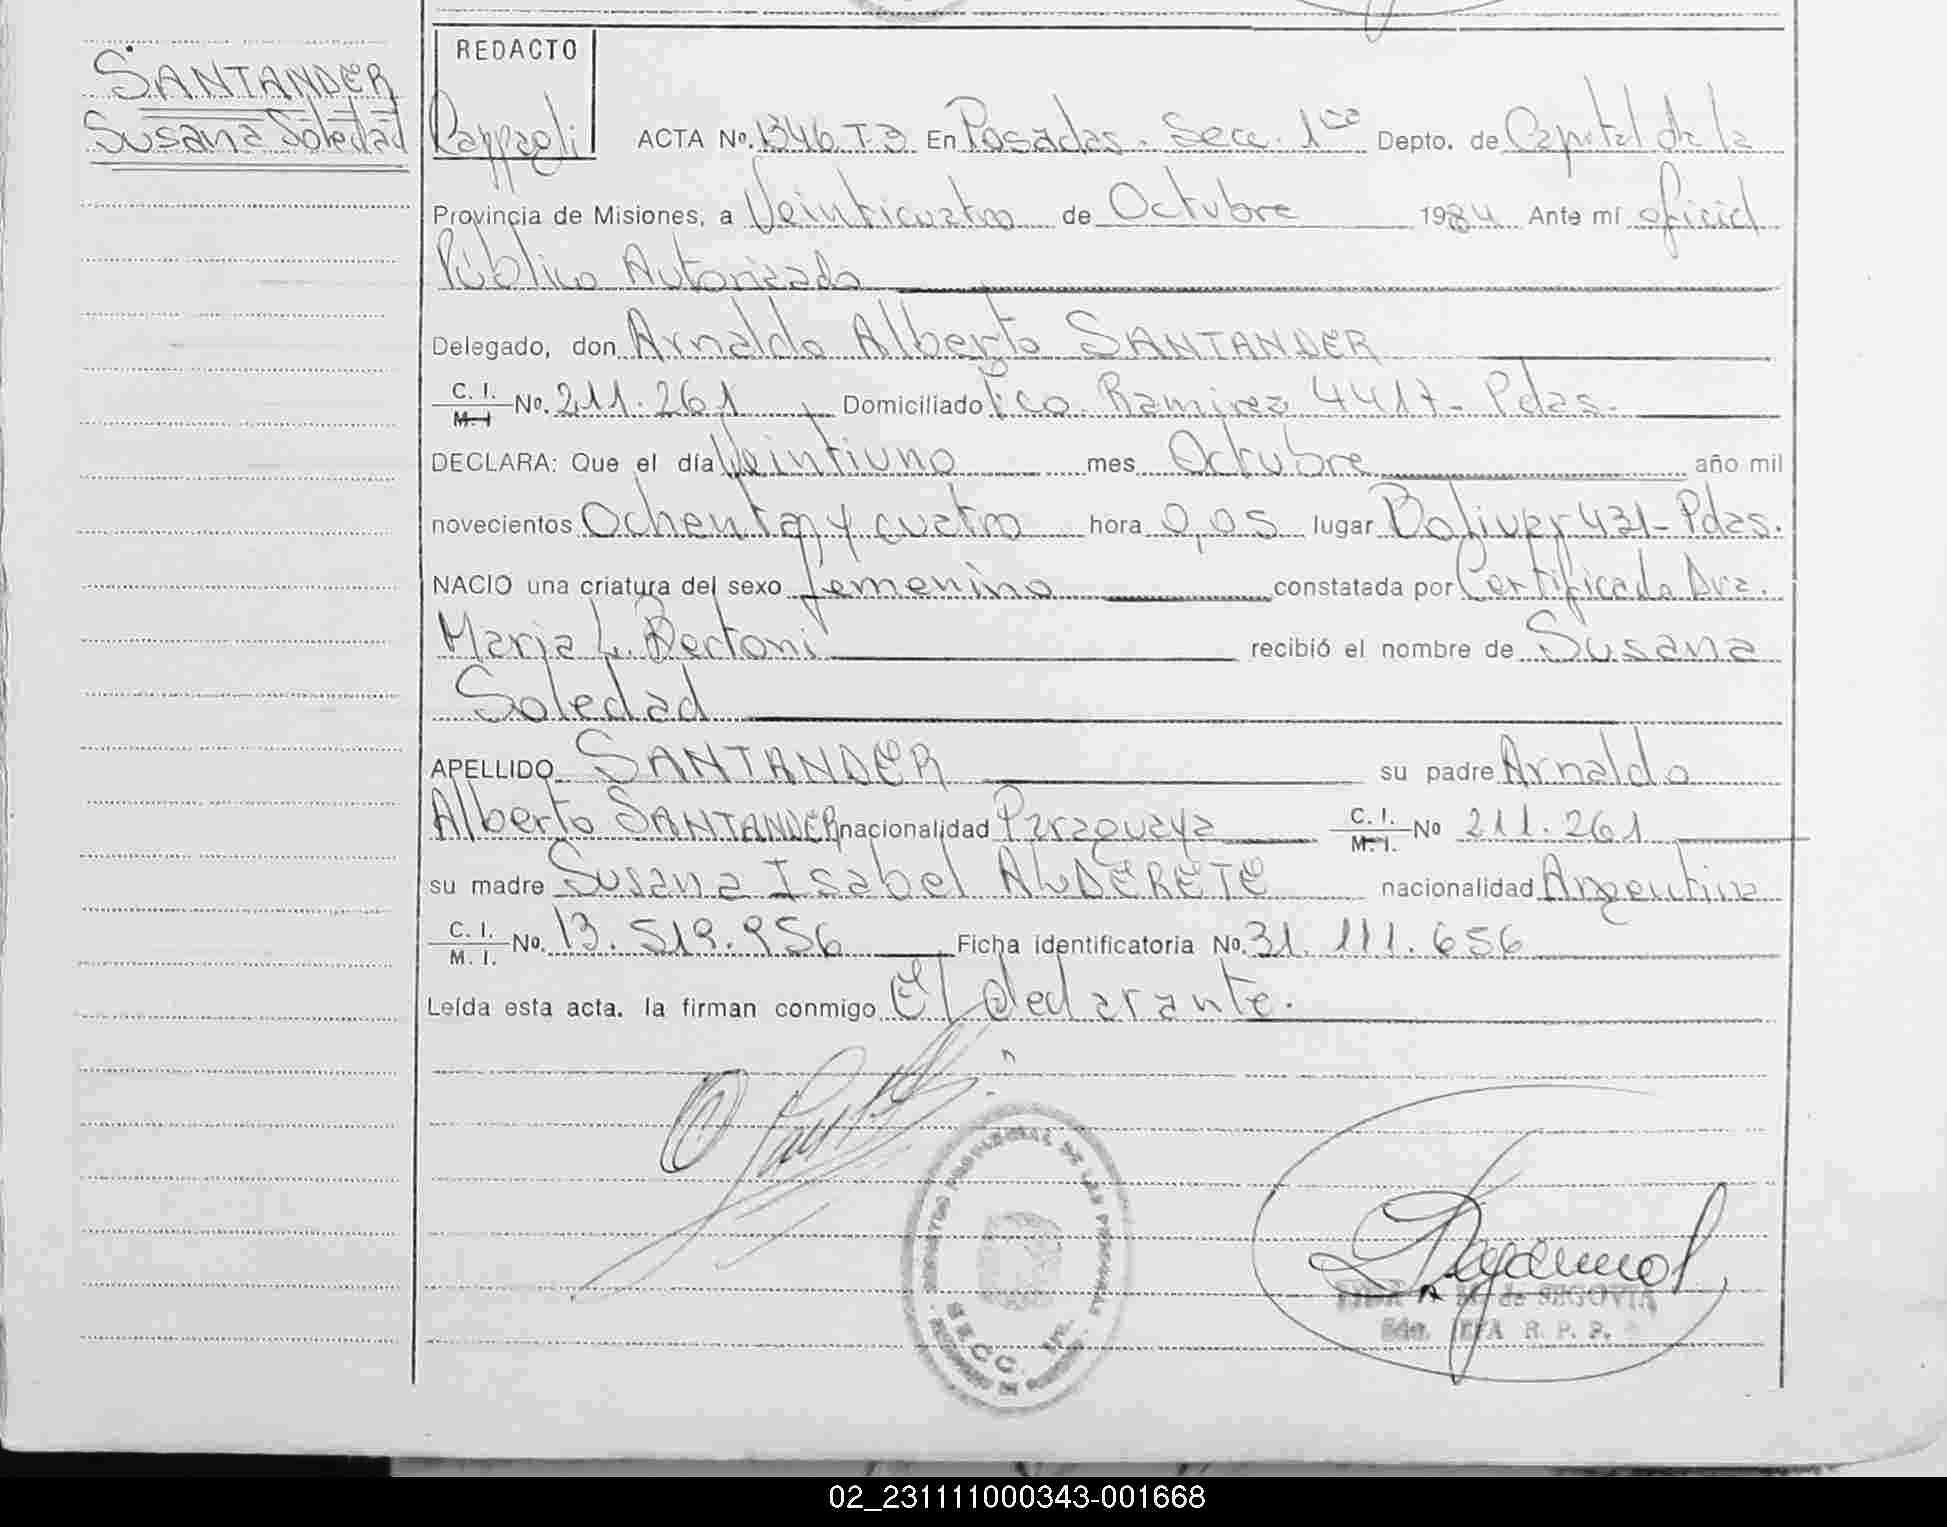 SANTANDER
Susana Soledad
REDACTO
ACTA Nº. 1346 T.3 En Posadas. Secc. 1ra Depto. de Capital de la
Provincia de Misiones, a Veinticuatro de Octubre 1984 Ante mí oficial
Público Autorizado
Delegado, don Arnaldo Alberto SANTANDER
C. I. M. I Nº. 211.261 Domiciliado Pco. Ramirez 4417- Pdas.
DECLARA: Que el día Veintiuno mes Octubre año mil
novecientos Ochenta y cuatro hora 0,05 lugar Bolivar 431- Pdas.
NACIO una criatura del sexo femenino constatada por Certificado Dra.
Maria L. Bertoni recibió el nombre de Susana
Soledad
APELLIDO SANTANDER su padre Arnaldo
Alberto SANTANDER nacionalidad Paraguaya C. I. M. I. Nº 211.261
su madre Susana Isabel ALDERETE nacionalidad Argentina
C. I. M. I. Nº. 13.519.956 Ficha identificatoria Nº. 31.111.656
Leída esta acta. la firman conmigo El declarante.
REGISTRO PROVINCIAL DE LAS PERSONAS
SECC. 1ra.
M. de SEGOVIA
JEFA R. P. P.
02_231111000343-001668